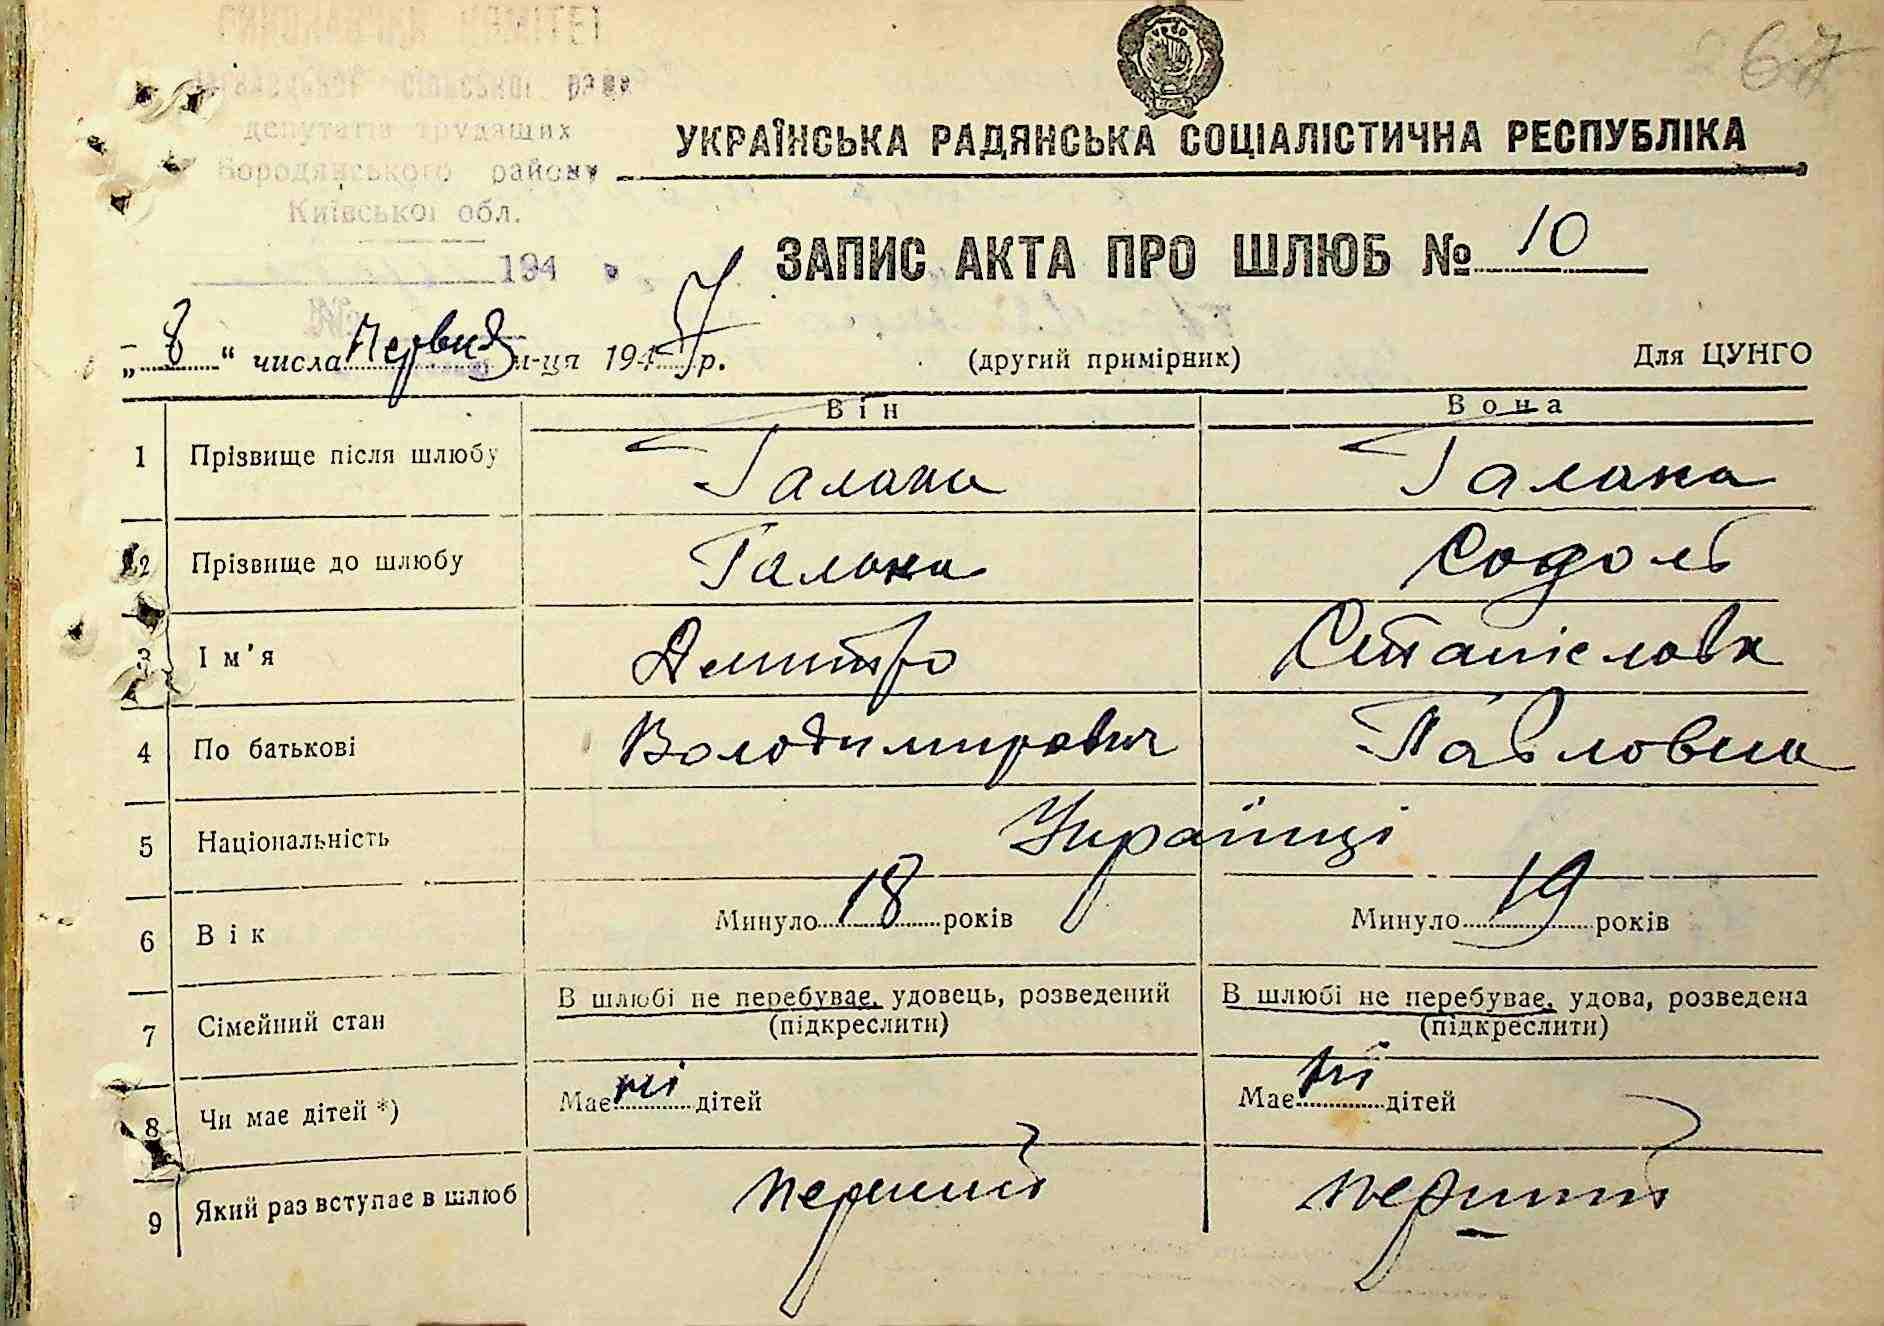 ВИКОНАВЧИЙ КОМІТЕТ
сільської ради
депутатів трудящих
Бородянського району
Київської обл.
194
267
УКРАЇНСЬКА РАДЯНСЬКА СОЦІАЛІСТИЧНА РЕСПУБЛІКА
ЗАПИС АКТА ПРО ШЛЮБ № 10
„8“ числа Червня м-ця 1947 р. (другий примірник) Для ЦУНГО
Він Вона
1 Прізвище після шлюбу Галака Галака
2 Прізвище до шлюбу Галака Содоль
3 Ім'я Дмитро Станіслава
4 По батькові Володимирович Павловна
5 Національність Українці
6 Вік Минуло 18 років Минуло 19 років
7 Сімейний стан В шлюбі не перебуває, удовець, розведений В шлюбі не перебуває, удова, розведена
(підкреслити) (підкреслити)
8 Чи має дітей *) Має ні дітей Має ні дітей
9 Який раз вступає в шлюб перший перший